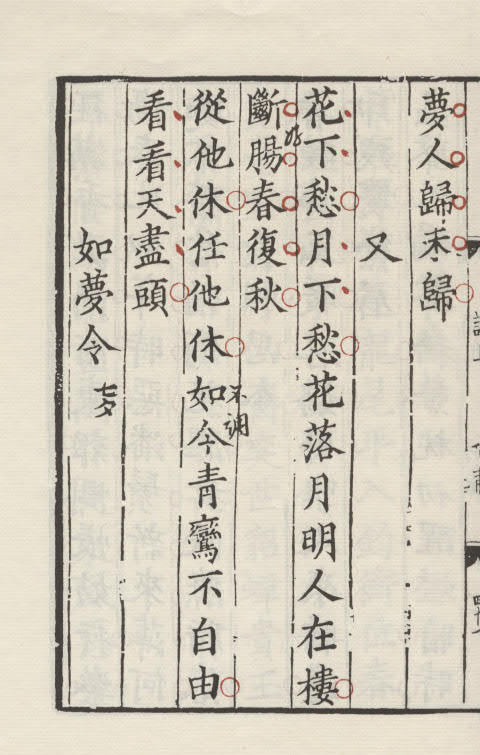 夢人歸未歸
又
花下愁月下愁花落月明人在樓
斷腸春復秋
從他休任他休如今青鸞不自由
看看天盡頭
如夢令 七夕
好
不調